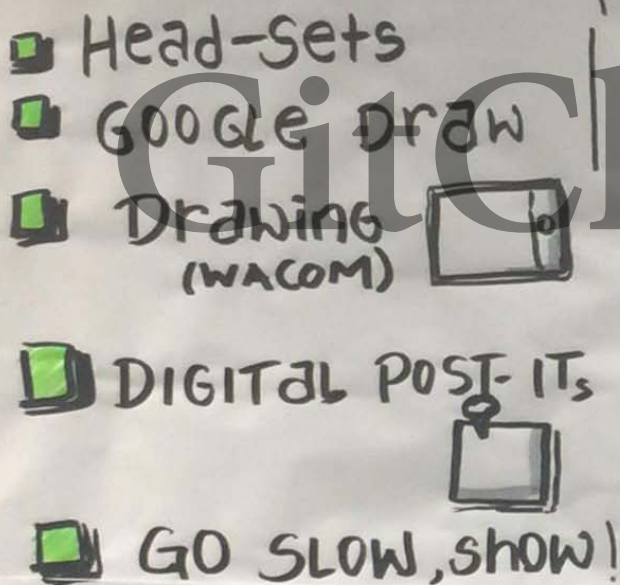 Head-Sets
GOOGLE Draw
Drawing
(WACOM)
DIGITAL POST-ITs
GO SLOW, show!
GitCh